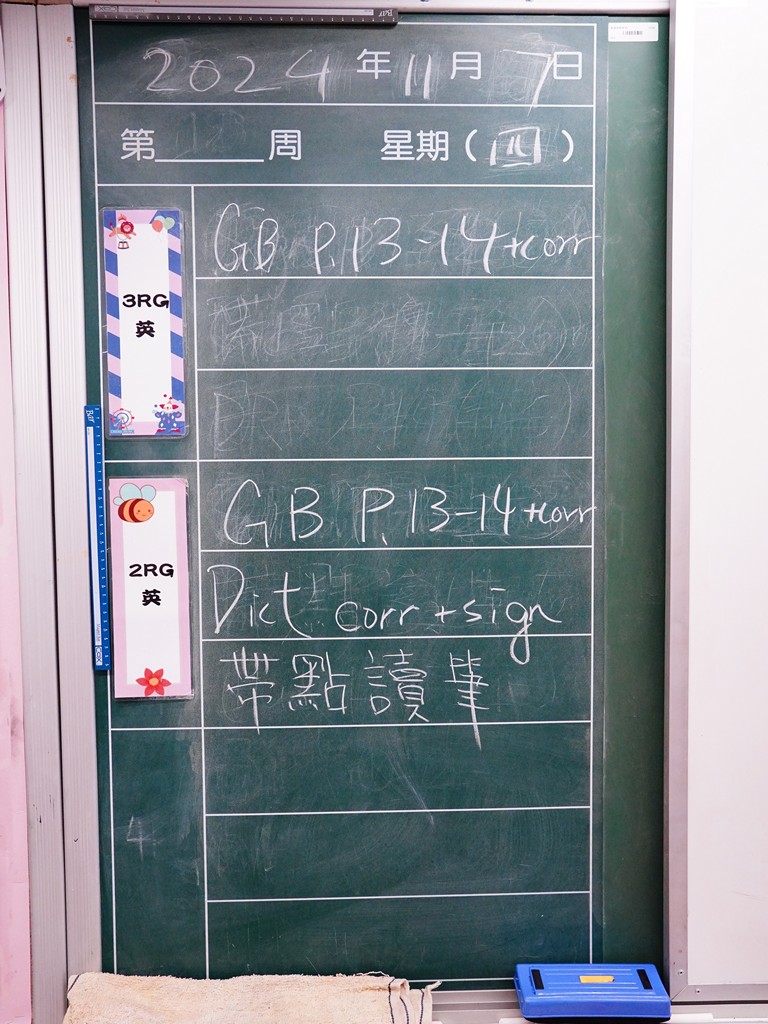 2024年11月7日
第 周 星期(四)
3RG
英
GB P.13-14+corr
2RG
英
GB P.13-14+corr
Dict corr+sign
帶點讀筆